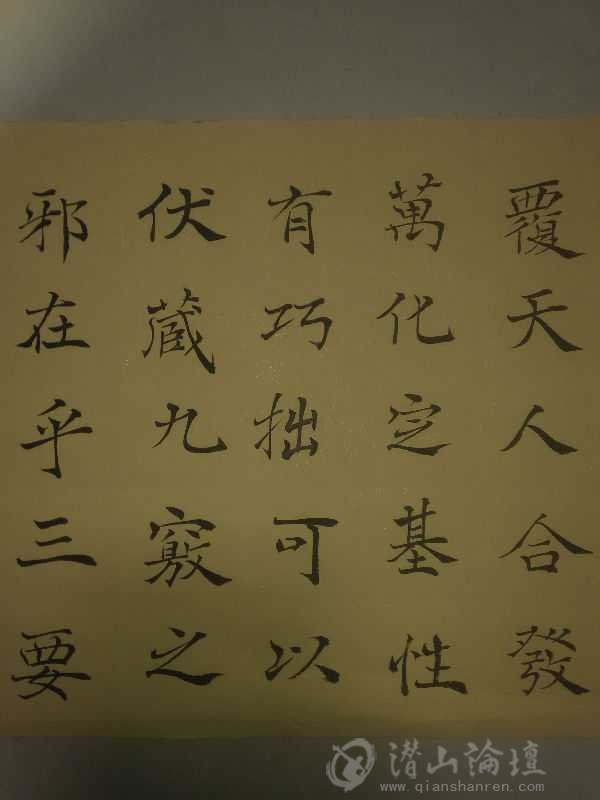 覆天人合發
萬化定基性
有巧拙可以
伏藏九竅之
邪在乎三要
潜山論壇
www.qianshanren.com